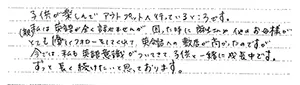 子供が楽しんでアウトプット人行っているところです。
(親)私は英語が全く話せませんが、困った時に先生方や他のお母様が
とても優しくフォローをしてくれて、英会話への敷居が高かったのですが
今では、私も英語意識がついてきて、子供と一緒に成長中です。
ずっと長く続けたいと思っております。